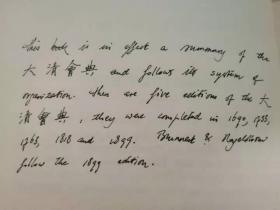 This book is in effect a summary of the
大清會典 and follows its system of
organization. There are five editions of the 大
清會典, they were completed in 1690, 1733,
1763, 1818 and 1899. Brunnert & Hagelstrom
follow the 1899 edition.